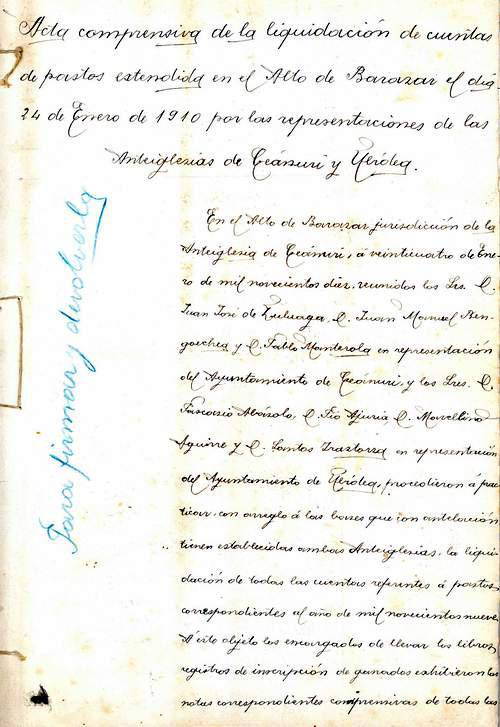 Acta comprensiva de la liquidación de cuentas
de pastos extendida en el Alto de Barazar el dia
24 de Enero de 1910 por las representaciones de las
Anteiglesias de Ceánuri y Ubidea.
Para firmar y devolverla
En el Alto de Barazar jurisdicción de la
Anteiglesia de Ceánuri, á veinticuatro de Ene-
ro de mil novecientos diez, reunidos los Sres. D.
Juan José de Zuluaga, D. Juan Manuel Ben-
goechea y D. Pablo Manterola en representación
del Ayuntamiento de Ceánuri, y los Sres. D.
Pascasio Abásolo, D. Pío Ajuria, D. Marcelino
Aguirre y D. Santos en representación
del Ayuntamiento de Ubidea, procedieron á prac-
ticar, con arreglo á las bases que con antelación
tienen establecidas ambas Anteiglesias, la liqui-
dación de todas las cuentas referentes á pastos
correspondientes al año de mil novecientos nueve.
A este objeto los encargados de llevar los libros
registros de inscripción de ganados exhibieron las
notas correspondientes comprensivas de todas las